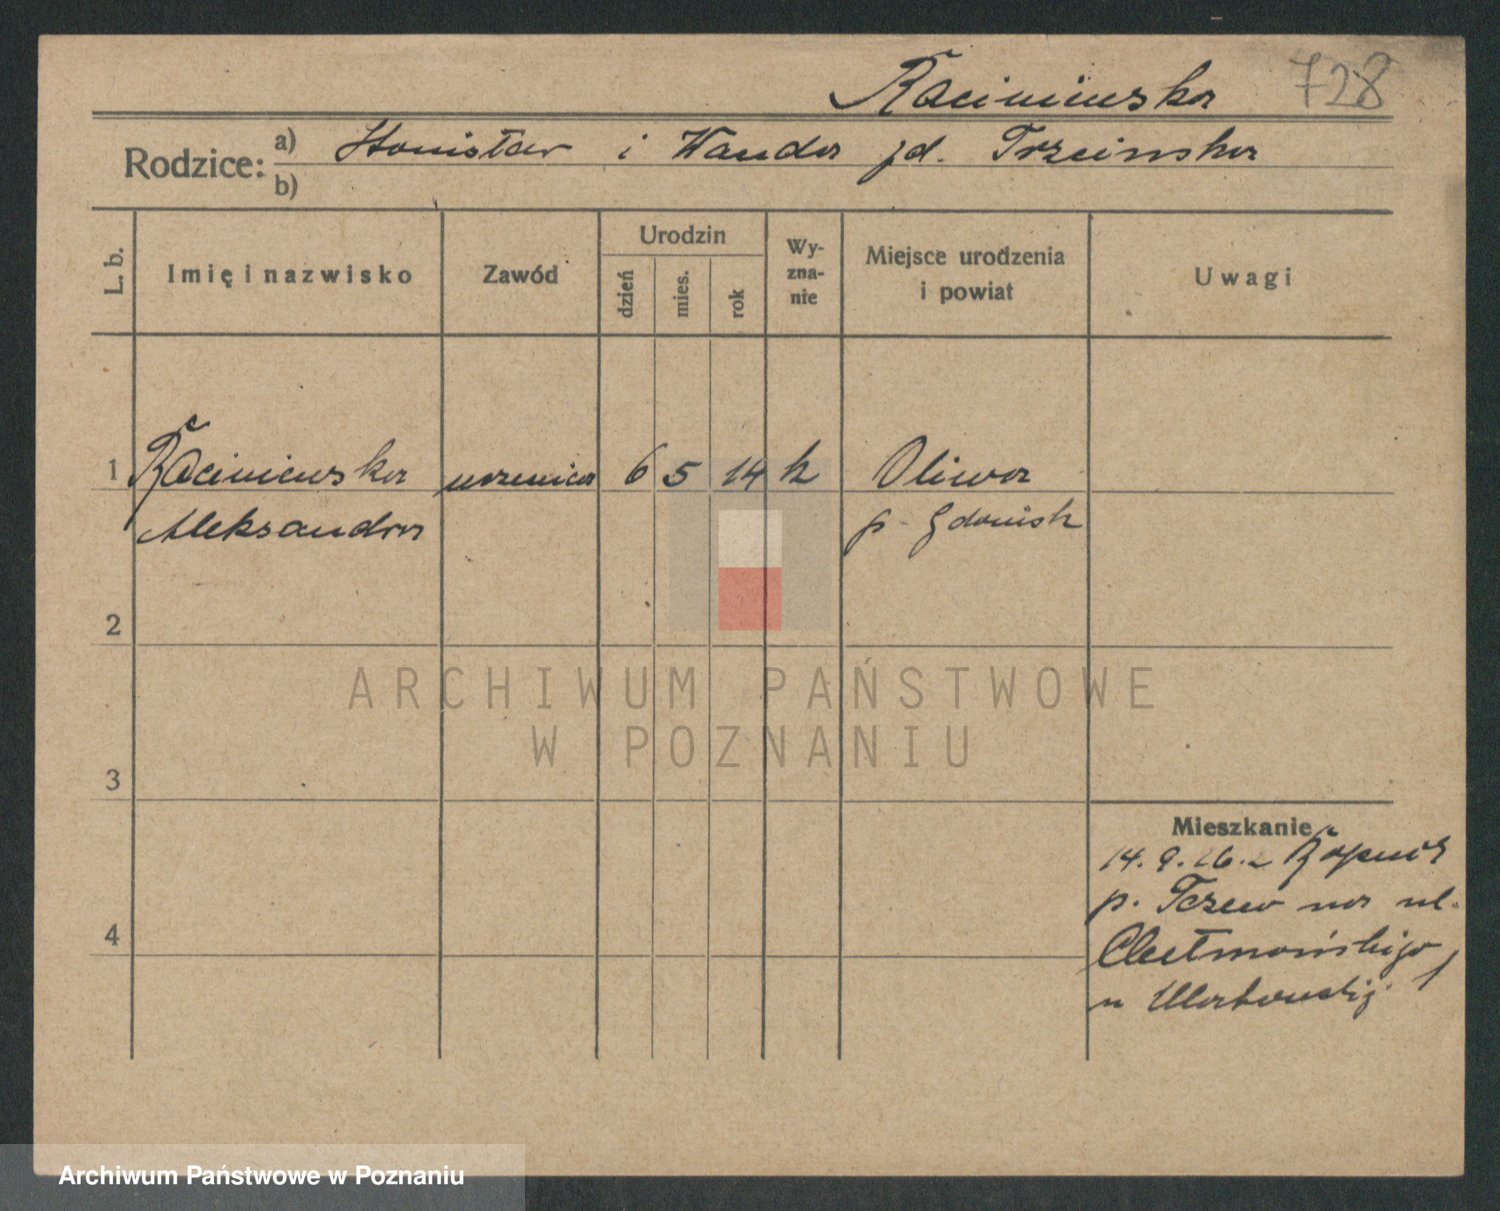 Raciniewska 728
Rodzice: a) Stanisław i Wanda zd. Trzcinska
b)
L. b. Imię i nazwisko Zawód Urodzin dzień mies. rok Wy-zna-nie Miejsce urodzenia i powiat Uwagi
1 Raciniewska uczenica 6 5 14 k Oliwa
Aleksandra p. Gdańsk
2
ARCHIWUM PAŃSTWOWE
W POZNANIU
3
Mieszkanie
14. 9. 26. z
p. Tczew na ul.
4
Chełmońskiego 1
u
Archiwum Państwowe w Poznaniu